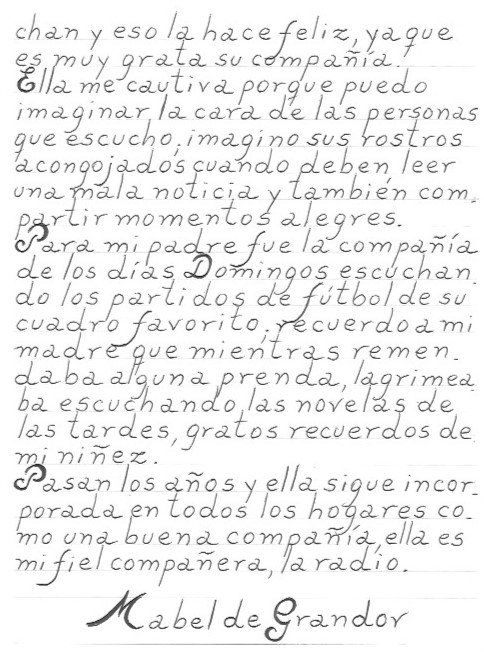 chan y eso la hace feliz, ya que
es muy grata su compañía.
Ella me cautiva porque puedo
imaginar la cara de las personas
que escucho, imagino sus rostros
acongojados cuando deben leer
una mala noticia y también com-
partir momentos alegres.
Para mi padre fue la compañía
de los días Domingos escuchan
do los partidos de fútbol de su
cuadro favorito, recuerdo a mi
madre que mientras remen-
daba alguna prenda, lagrimea
ba escuchando las novelas de
las tardes, gratos recuerdos de
mi niñez.
Pasan los años y ella sigue incor-
porada en todos los hogares co-
mo una buena compañía, ella es
mi fiel compañera, la radio.
Mabel de Grandov